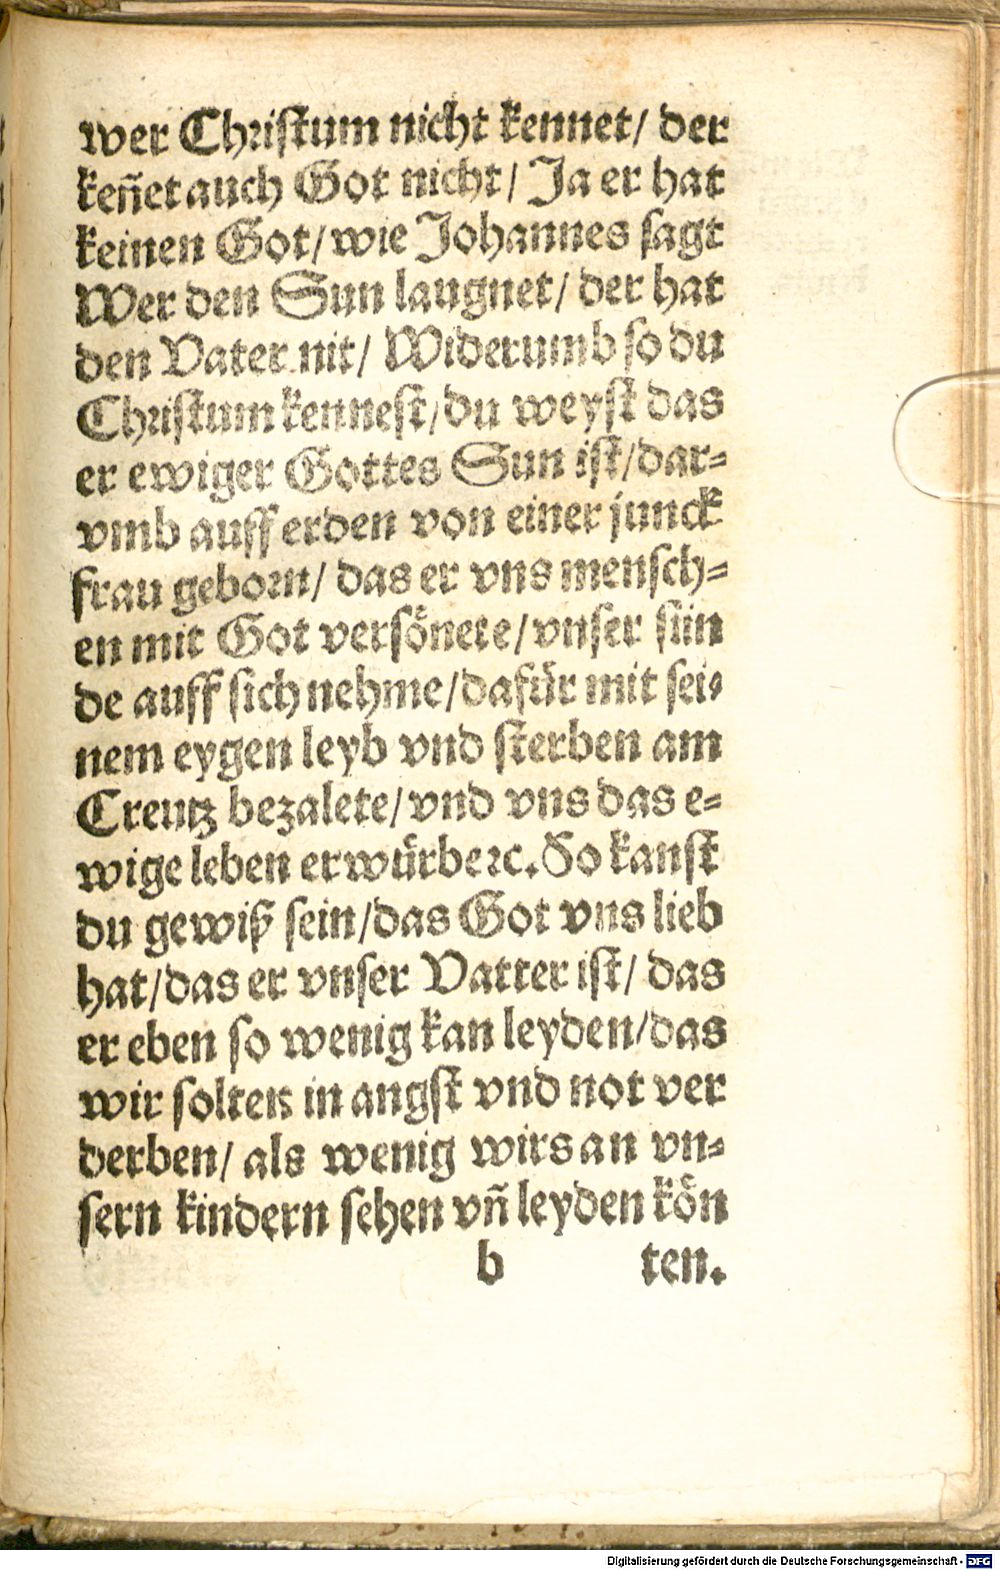 wer Christum nicht kennet/ der
keñet auch Got nicht/ Ja er hat
keinen Got/ wie Johannes sagt
Wer den Sun laugnet/ der hat
den Vater nit/ Widerumb so du
Christum kennest/ du weyst das
er ewiger Gottes Sun ist/ dar-
vmb auff erden von einer junck
frau geborn/ das er vns mensch-
en mit Got versönete/ vnser sün
de auff sich nehme/ dafür mit sei-
nem eygen leyb vnd sterben am
Creutz bezalete/ vnd vns das e-
wige leben erwürbe ꝛc. So kanst
du gewiß sein/ das Got vns lieb
hat/ das er vnser Vatter ist/ das
er eben so wenig kan leyden/ das
wir solten in angst vnd not ver
derben/ als wenig wirs an vn-
sern kindern sehen vñ leyden kön
b ten.
Digitalisierung gefördert durch die Deutsche Forschungsgemeinschaft - DFG